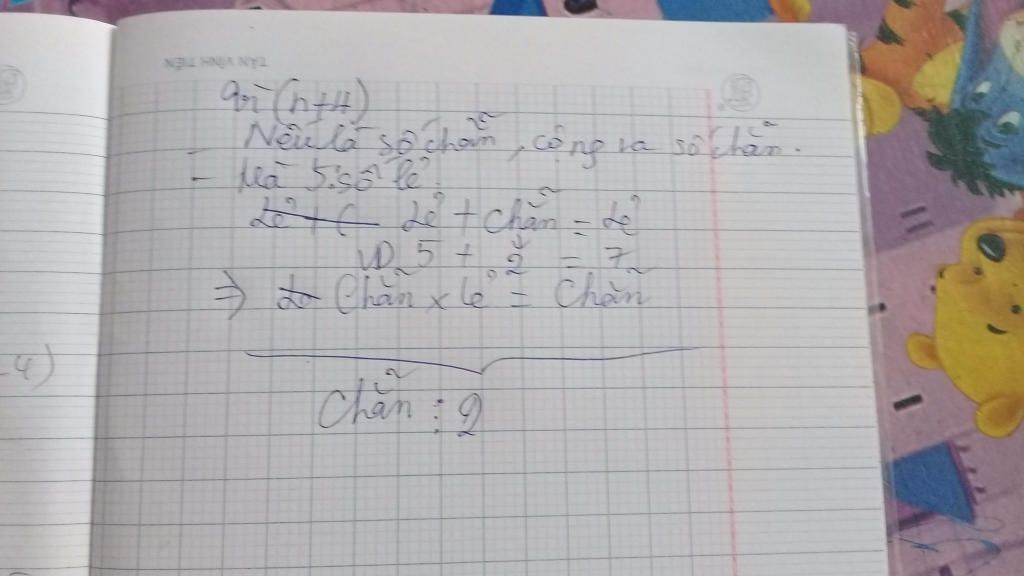 TÂN VĨNH TIẾN
Vì (n+4)
- Nếu là số chẵn, cộng ra số chẵn.
- Mà 5: số lẻ.
Lẻ + C Lẻ + chẵn = Lẻ
VD 5 + 2 = 7
=> Lẻ Chẵn x lẻ = Chẵn
_4)
Chẵn ⋮ 2